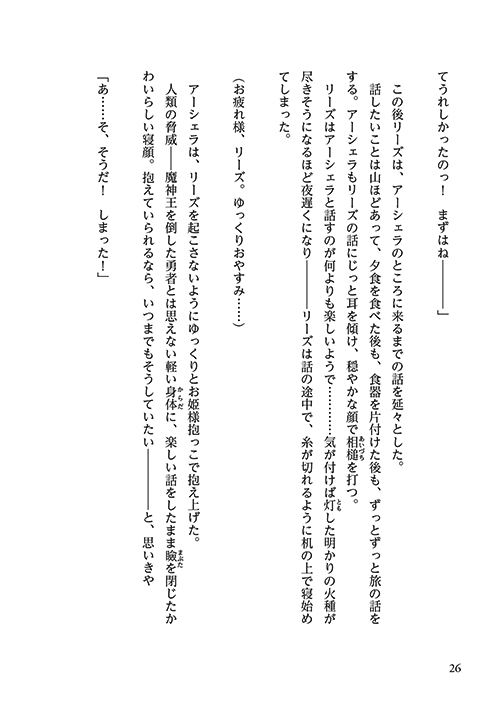 てうれしかったのっ！　まずはね――――」
この後リーズは、アーシェラのところに来るまでの話を延々とした。
話したいことは山ほどあって、夕食を食べた後も、食器を片付けた後も、ずっとずっと旅の話を
する。アーシェラもリーズの話にじっと耳を傾け、穏やかな顔で相槌を打つ。
リーズはアーシェラと話すのが何よりも楽しいようで…………気が付けば灯した明かりの火種が
尽きそうになるほど夜遅くになり――――リーズは話の途中で、糸が切れるように机の上で寝始め
てしまった。
（お疲れ様、リーズ。ゆっくりおやすみ……）
アーシェラは、リーズを起こさないようにゆっくりとお姫様抱っこで抱え上げた。
人類の脅威――魔神王を倒した勇者とは思えない軽い身体に、楽しい話をしたまま瞼を閉じたか
わいらしい寝顔。抱えていられるなら、いつまでもそうしていたい――――と、思いきや
「あ……そ、そうだ！　しまった！」
あいづち
とも
からだ
まぶた
26